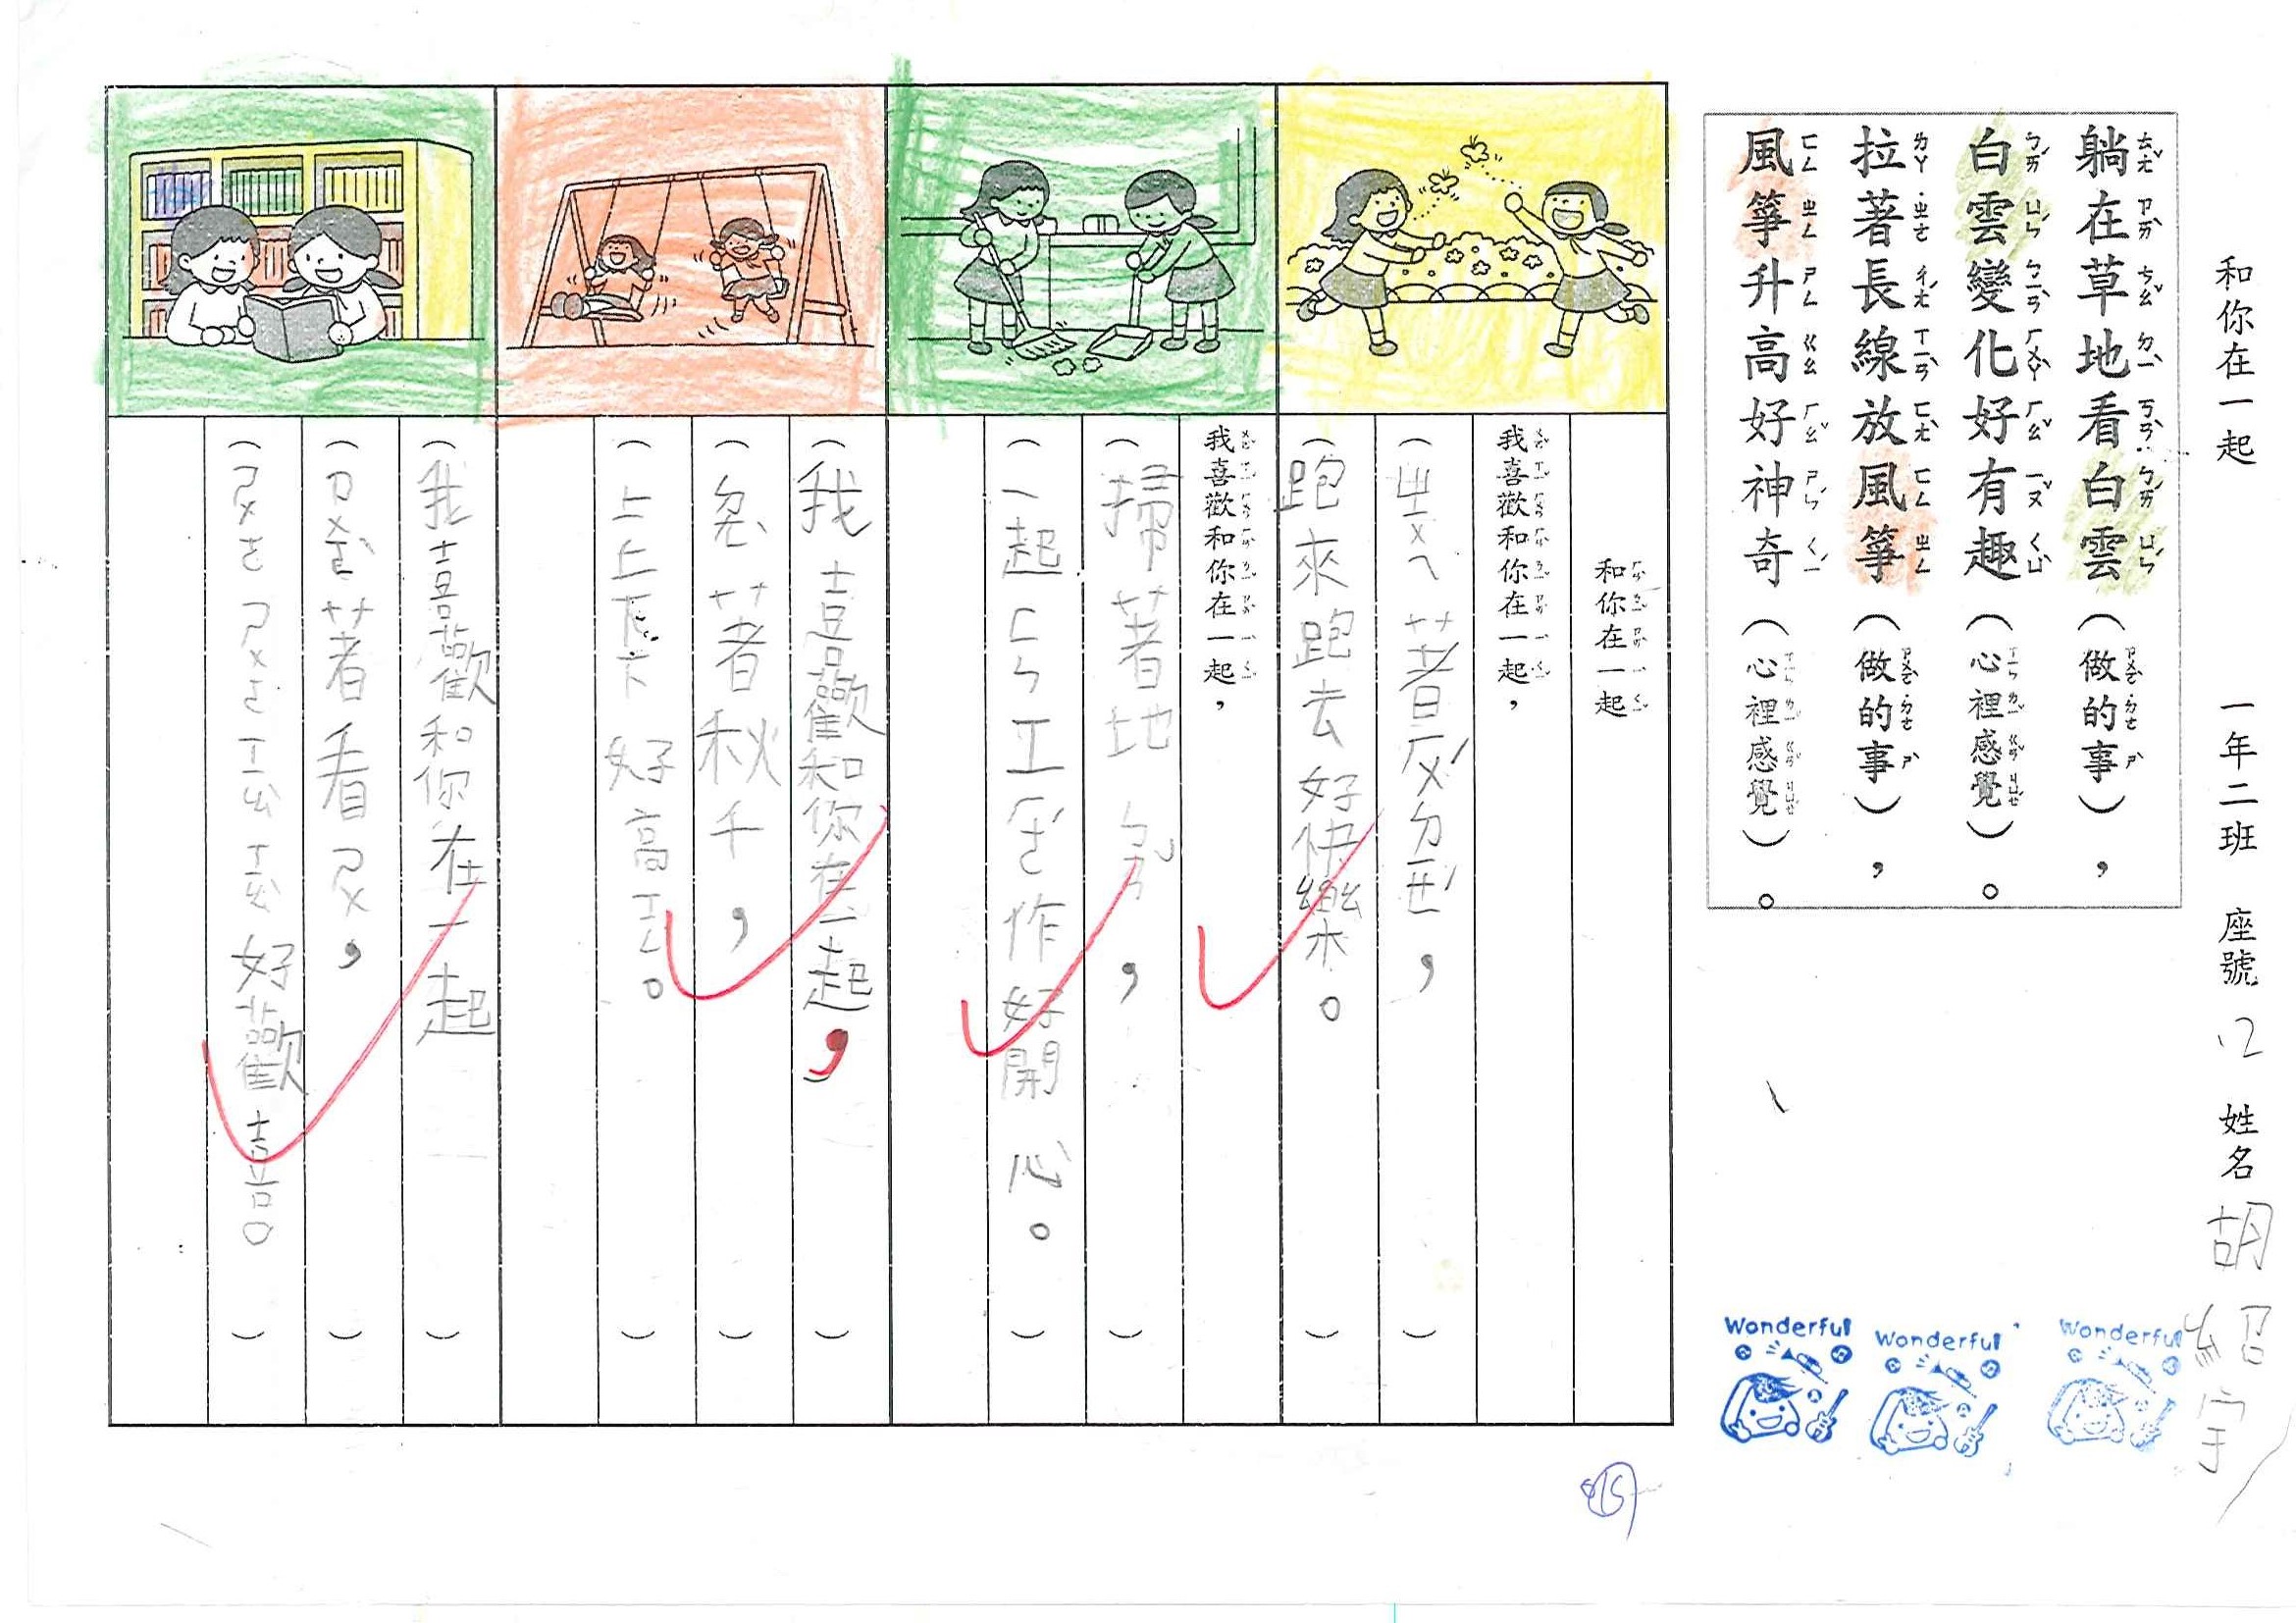 和你在一起　一年二班　座號 12　姓名 胡紹宇
躺在草地看白雲（做的事），
白雲變化好有趣（心裡感覺）。
拉著長線放風箏（做的事），
風箏升高好神奇（心裡感覺）。
和你在一起
我喜歡和你在一起，
（ㄓㄨㄟ著ㄏㄨˊㄉㄧㄝˊ，）
（跑來跑去好快樂。）
我喜歡和你在一起，
（掃著地，）
（一起ㄈㄣ工ㄏㄜˊ作好開心。）
（我喜歡和你在一起，）
（著秋千，）
（上上下下好高ㄒㄧㄥ。）
（我喜歡和你在一起
（著看ㄕㄨ，）
（好歡喜。）
Wonderful
Wonderful
Wonderful